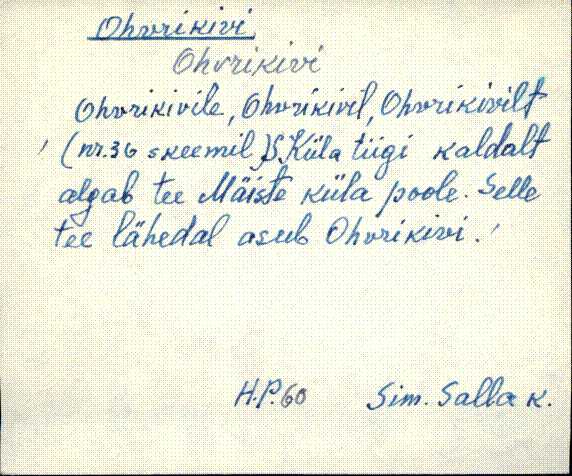 Ohvrikivi
Ohvrikivi
Ohvrikivile, Ohvrikivil, Ohvrikivilt
(nr. 36 skeemil) S. Küla tiigi kaldalt
algab tee Mäiste küla poole. Selle
tee lähedal asub Ohvrikivi.
H.P. 60 Sim. Salla k.